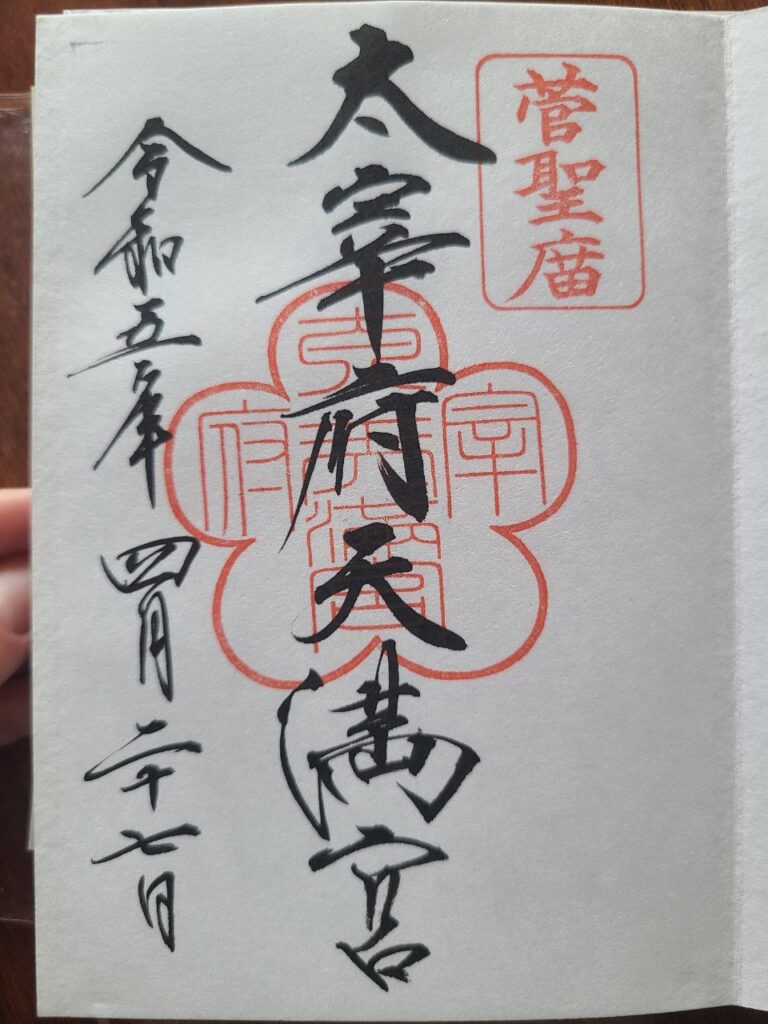 菅聖庿
太宰府天満宮
太
宰
府
天満宮
令和五年四月二十七日